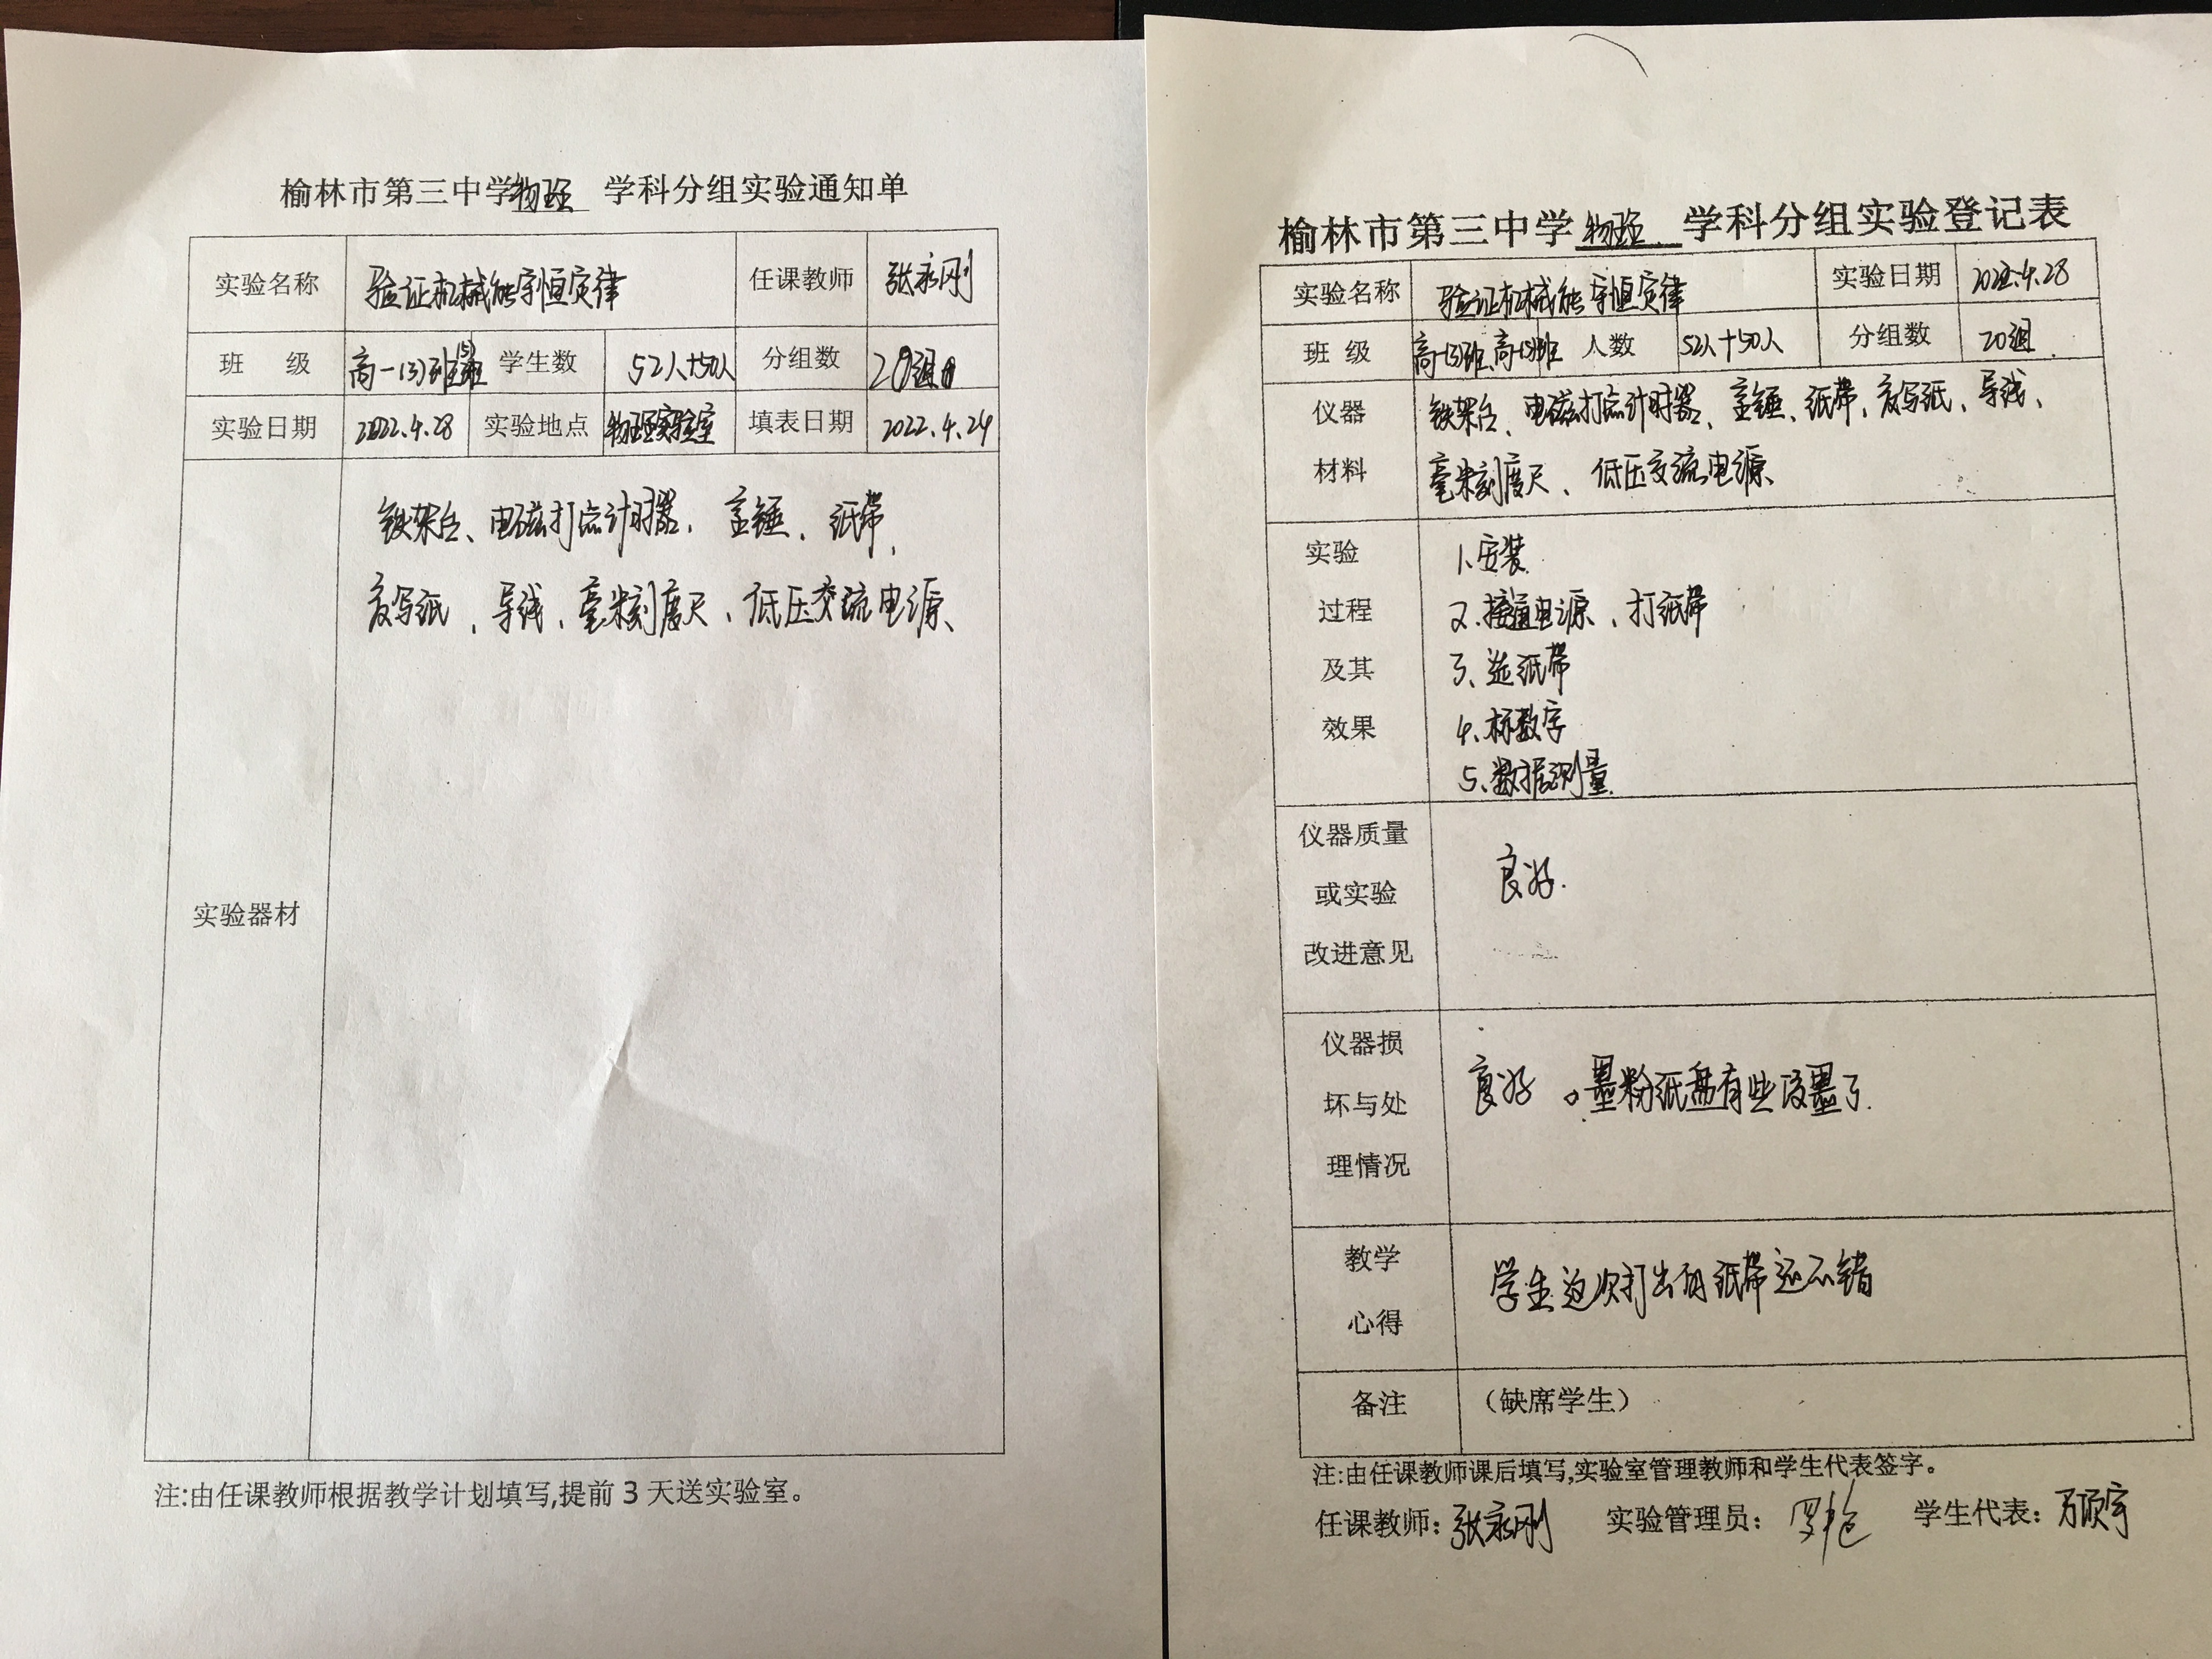 榆林市第三中学物理 学科分组实验通知单
实验名称 验证机械能守恒定律 任课教师 张永刚
班 级 高一(3)班 (5)班 学生数 52人+50人 分组数 20组
实验日期 2022.4.28 实验地点 物理实验室 填表日期 2022.4.24
实验器材
铁架台、电磁打点计时器、重锤、纸带、
复写纸、导线、毫米刻度尺、低压交流电源、
注:由任课教师根据教学计划填写,提前3天送实验室。
榆林市第三中学 物理 学科分组实验登记表
实验名称 验证机械能守恒定律 实验日期 2022.4.28
班 级 高一(3)班、高一(5)班 人数 52人+50人 分组数 20组
仪器 铁架台、电磁打点计时器、重锤、纸带、复写纸、导线、
材料 毫米刻度尺、低压交流电源、
实验 1、安装
过程 2、接通电源、打纸带
及其 3、选纸带
效果 4、标数字
5、数据测量
仪器质量
或实验
改进意见
良好.
仪器损
坏与处
理情况
良好。墨粉纸盘有些没墨了.
教学
心得
学生这次打出的纸带还不错
备注 （缺席学生）
注:由任课教师课后填写,实验室管理教师和学生代表签字。
任课教师: 张永刚 实验管理员: 学生代表: